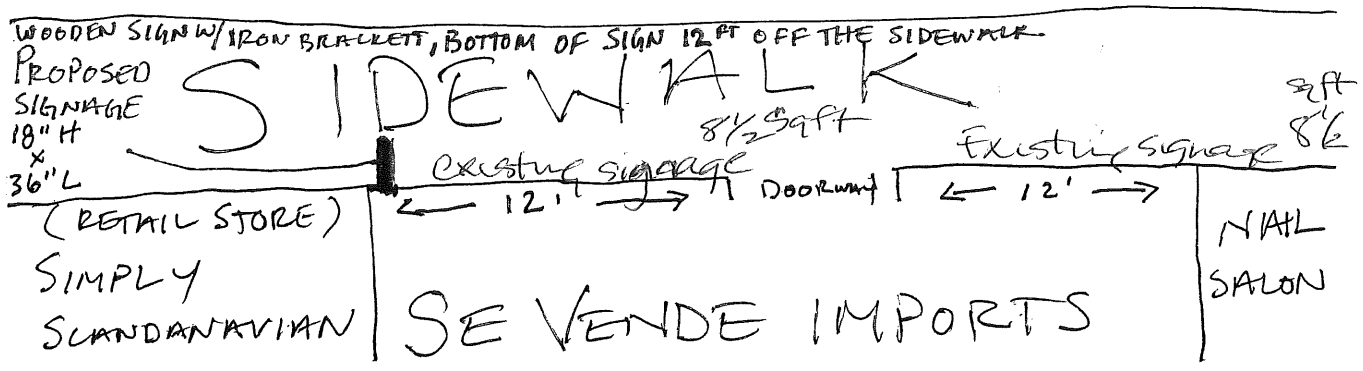 WOODEN SIGN W/IRON BRACKETT, BOTTOM OF SIGN 12FT OFF THE SIDEWALK
PROPOSED
SIGNAGE
18" H
x
36" L
SIDEWALK
8½ sqft
existing signage
Existing signage
sqft
8½
12'
DOORWAY
12'
(RETAIL STORE)
SIMPLY
SCANDANAVIAN
SE VENDE IMPORTS
NAIL
SALON